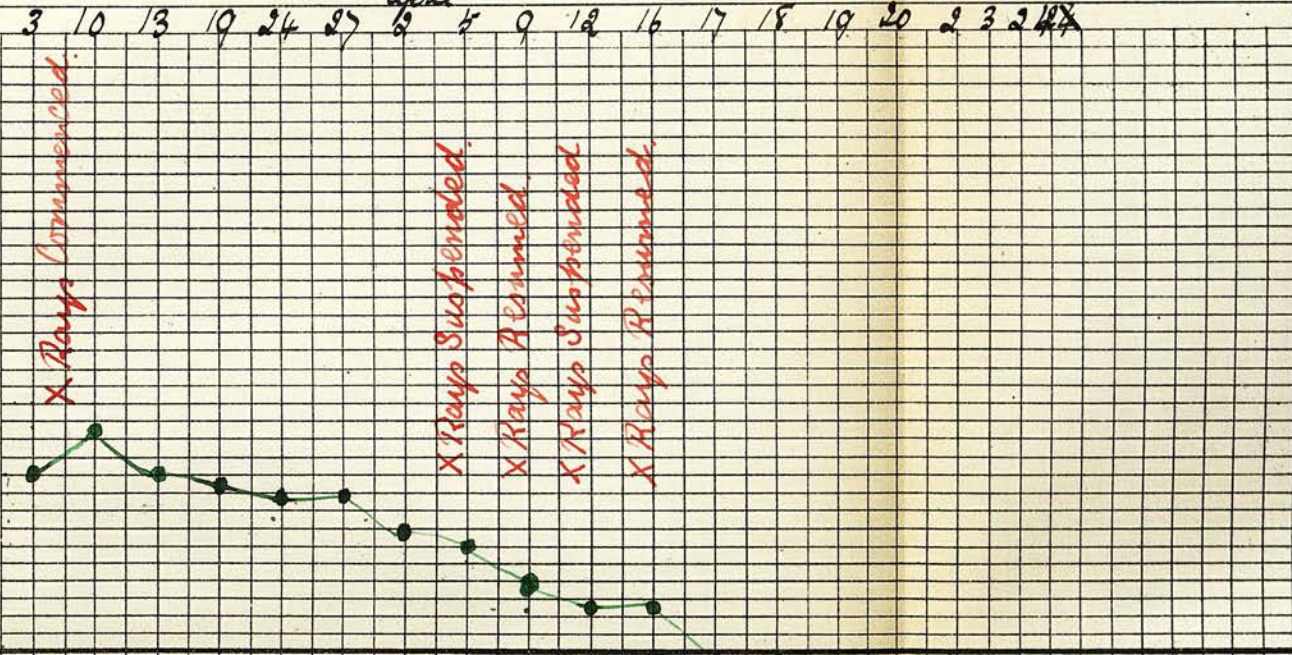 3 10 13 19 24 27 2 5 9 12 16 17 18 19 20 2 3 24
X Rays Commenced.
X Rays Suspended.
X Rays Resumed.
X Rays Suspended
X Rays Resumed.